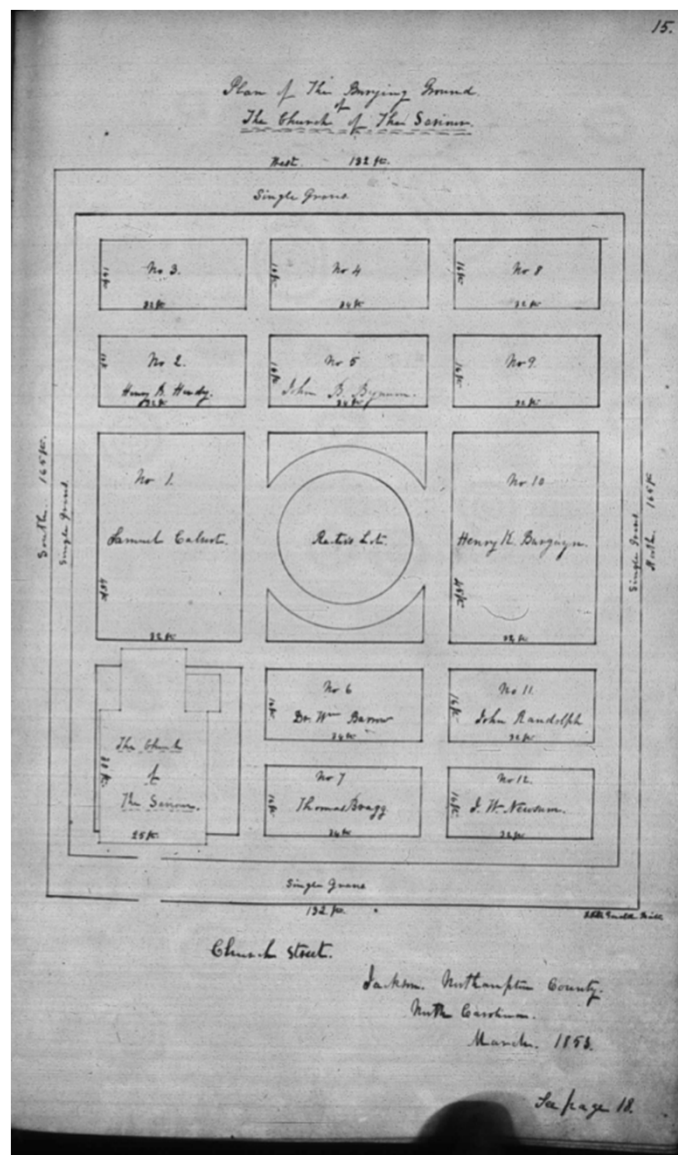 15.
Plan of The Burying Ground
of
The Church of The Saviour.
West. 132 ft.
Single Graves
No 3. 16 ft 32 ft
No 4 16 ft 24 ft
No 8 16 ft 32 ft
No 2. Henry K. Hardy. 32 ft
No 5 John B. Bynum. 16 ft 24 ft
No 9. 16 ft 32 ft
South. 165 ft.
Single Graves.
No 1. Samuel Calvert. 48 ft 32 ft
Lot.
No 10 Henry K. Burgwyn. 48 ft 32 ft
Single Graves
North. 165 ft
The Church
of
The Saviour.
25 ft.
No 6 Dr. Wm Barrow 16 ft 24 ft
No 11. John Randolph 16 ft 32 ft
No 7 Thomas Bragg 16 ft 24 ft
No 12. J. W. Newsum. 16 ft 32 ft
Single Graves
132 ft.
Church Street.
Jackson. Northampton County.
North Carolina.
March. 1853.
See page 18.